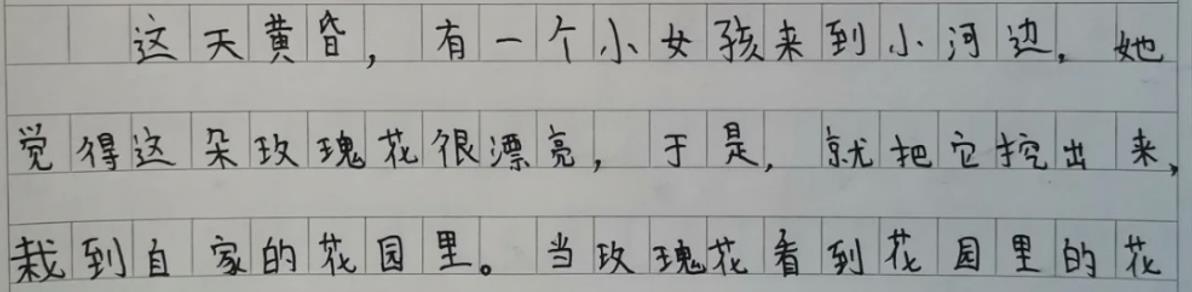 这天黄昏，有一个小女孩来到小河边，她
觉得这朵玫瑰花很漂亮，于是，就把它挖出来，
栽到自家的花园里。当玫瑰花看到花园里的花